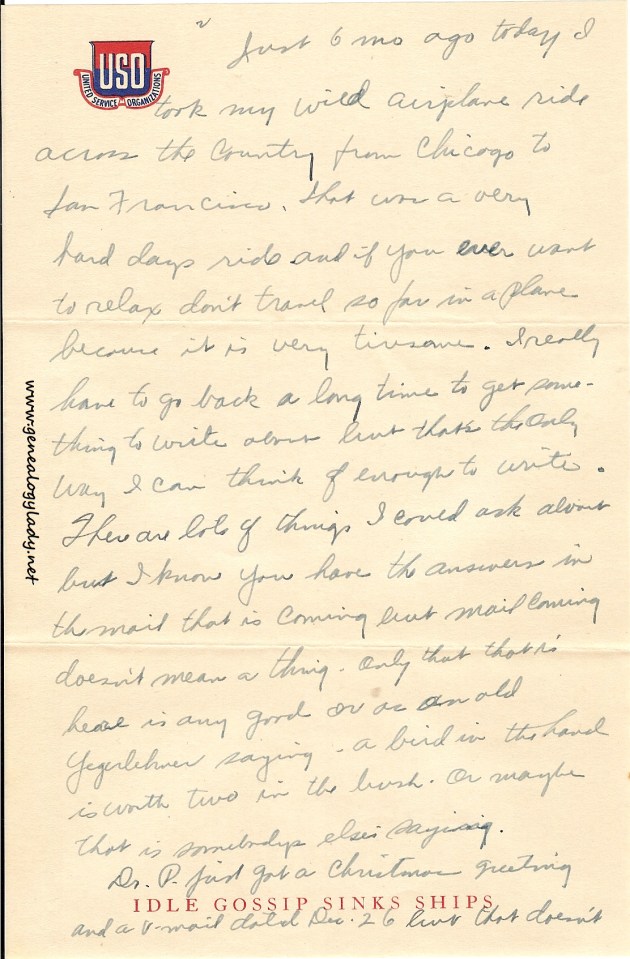 2
USO
UNITED SERVICE ORGANIZATIONS
Just 6 mo ago today I
took my wild airplane ride
across the country from Chicago to
San Francisco. That was a very
hard days ride and if you ever want
to relax don't travel so far in a plane
because it is very tiresome. I really
have to go back a long time to get some-
thing to write about but that's the only
way I can think of enough to write.
There are lots of things I could ask about
but I know you have the answers in
the mail that is coming but mail coming
doesn't mean a thing. Only that that is
here is any good or as an old
Yegerlehner saying - a bird in the hand
is worth two in the bush. Or maybe
that is somebodys elses saying.
Dr. P. just got a Christmas greeting
IDLE GOSSIP SINKS SHIPS
and a V-mail dated Dec. 26 but that doesn't
www.genealogylady.net